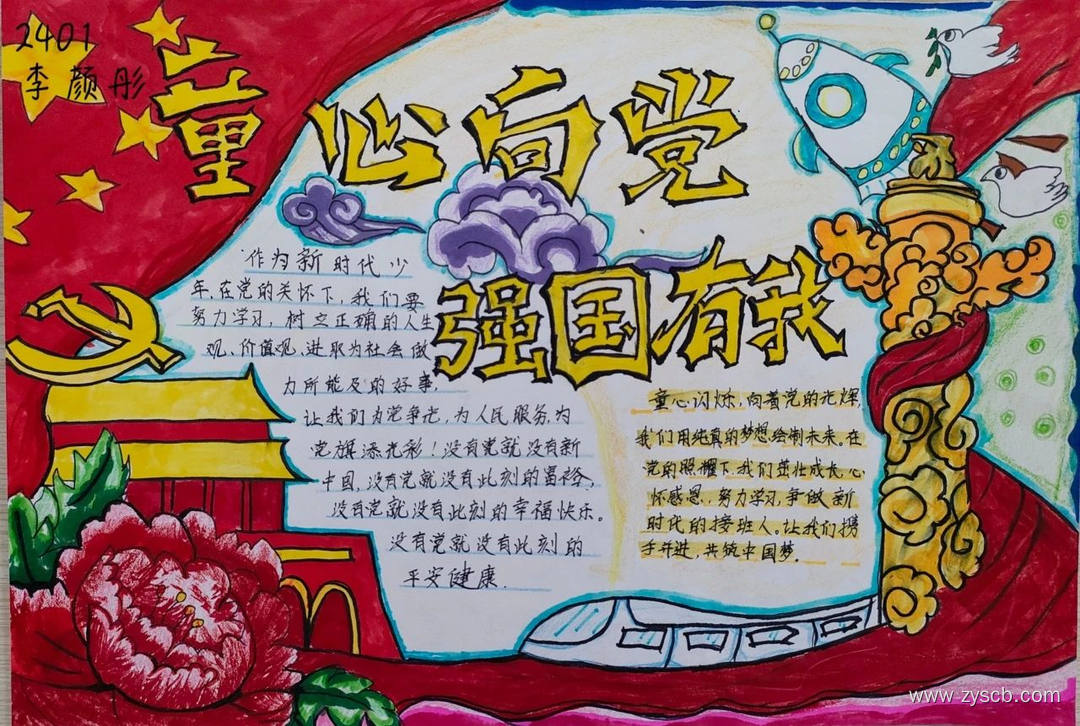 2401
李颜彤
童心向党
强国有我
作为新时代少
年,在党的关怀下,我们要
努力学习,树立正确的人生
观、价值观,进取为社会做
力所能及的好事,
让我们为党争光,为人民服务,为
党旗添光彩!没有党就没有新
中国,没有党就没有此刻的富裕,
没有党就没有此刻的幸福快乐。
没有党就没有此刻的
平安健康.
童心闪烁,向着党的光辉,
我们用纯真的梦想绘制未来,在
党的照耀下,我们茁壮成长,心
怀感恩,努力学习,争做新
时代的接班人。让我们携
手并进,共筑中国梦.
www.zyscb.com